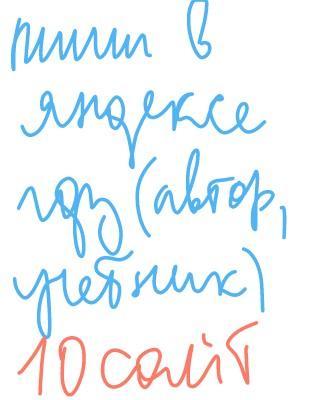 пиши в
яндексе
гдз (автор,
учебник)
10 сайт